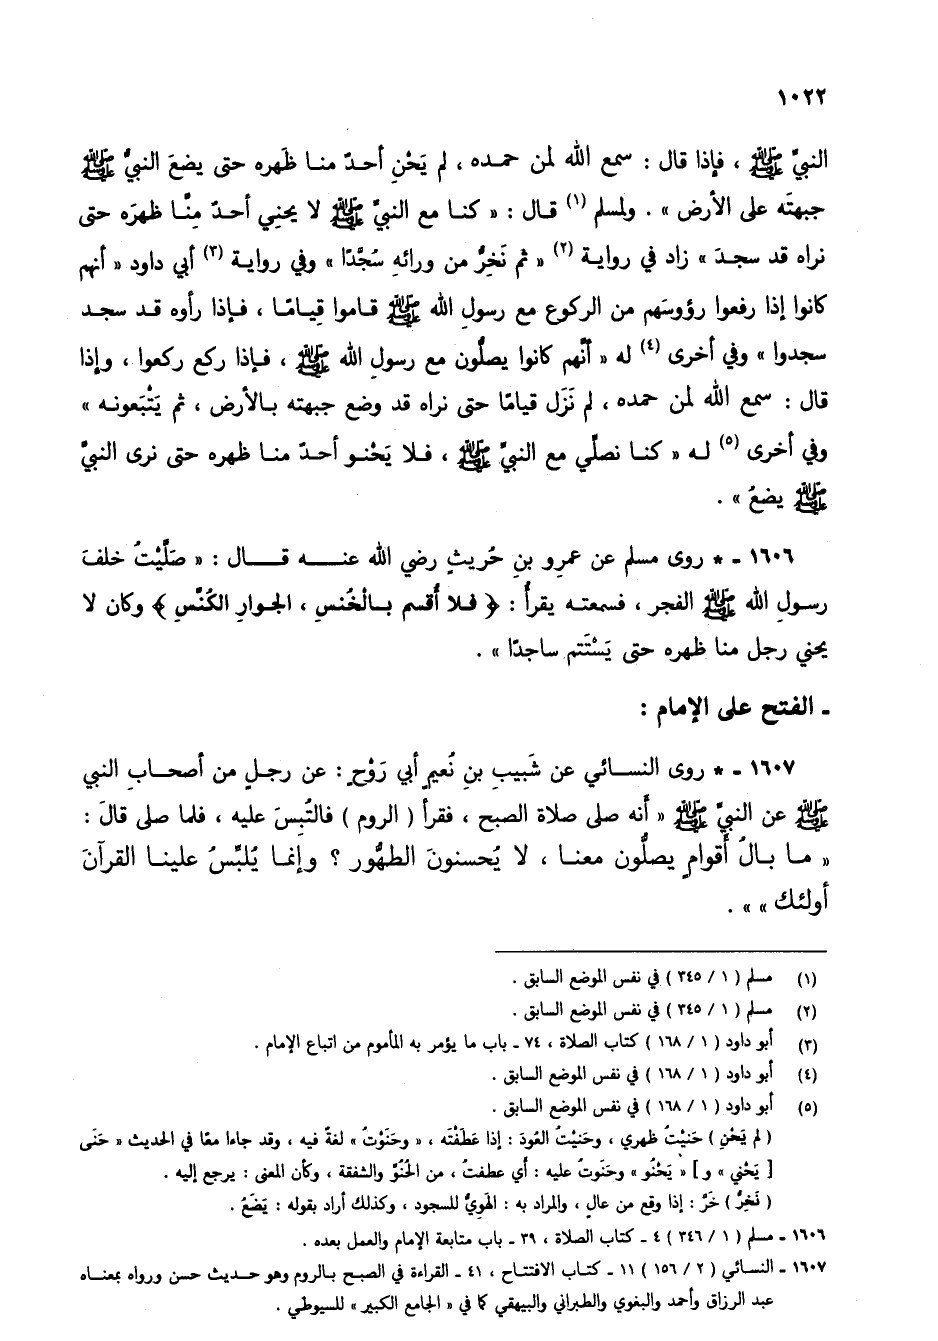 ١٠٢٢
النبيِّ ﷺ ، فإذا قال : سمع الله لمن حمده ، لم يَحْنِ أحدٌ منا ظَهره حتى يضعَ النبيُّ ﷺ
جبهتَه على الأرض » . ولمسلم (١) قال : « كنا مع النبيِّ ﷺ لا يحنِي أحدٌ مِنَّا ظهرَه حتى
نراه قد سجدَ » زاد في رواية (٢) « ثم نَخِرُّ من ورائهِ سُجَّدًا » وفي رواية (٣) أبي داود « أنهم
كانوا إذا رفعوا رؤوسَهم من الركوع مع رسولِ الله ﷺ قاموا قِيامًا ، فإذا رأوه قد سجد
سجدوا » وفي أخرى (٤) له « أنَّهم كانوا يصلُّون مع رسولِ الله ﷺ ، فإذا ركع ركعوا ، وإذا
قال : سمع الله لمن حمده ، لم نَزَل قيامًا حتى نراه قد وضع جبهته بالأرض ، ثم يَتْبَعونه »
وفي أخرى (٥) له « كنا نصلِّي مع النبيِّ ﷺ ، فلا يَحْنو أحدٌ منا ظهره حتى نرى النبيَّ
ﷺ يضعُ » .
١٦٠٦ ـ * روى مسلم عن عمرِو بنِ حُريثٍ رضي الله عنه قال : « صَلَّيْتُ خلفَ
رسولِ الله ﷺ الفجر ، فسمعته يقرأُ : ﴿ فلا أُقسم بالْخُنس ، الجوارِ الكُنَّسِ ﴾ وكان لا
يحني رجل منا ظهره حتى يَسْتَتم ساجدًا » .
ـ الفتح على الإمام :
١٦٠٧ ـ * روى النسائي عن شَبيبِ بنِ نُعيمٍ أبي رَوْحٍ : عن رجلٍ من أصحابِ النبي
ﷺ عن النبيِّ ﷺ « أَنه صلى صلاة الصبح ، فقرأ ( الروم ) فالتُبِسَ عليه ، فلما صلى قالَ :
« ما بالُ أَقوامٍ يصلُّون معنا ، لا يُحسنونَ الطهُّور ؟ وإنما يُلبِّسُ علينا القرآنَ
أولئك » » .
(١) مسلم ( ١ / ٣٤٥ ) في نفس الموضع السابق .
(٢) مسلم ( ١ / ٣٤٥ ) في نفس الموضع السابق .
(٣) أبو داود ( ١ / ١٦٨ ) كتاب الصلاة ، ٧٤ ـ باب ما يؤمر به المأموم من اتباع الإمام .
(٤) أبو داود ( ١ / ١٦٨ ) في نفس الموضع السابق .
(٥) أبو داود ( ١ / ١٦٨ ) في نفس الموضع السابق .
( لم يَحْنِ ) حَنيْتُ ظهري ، وحَنيْتُ العُودَ : إذا عَطَفْتَه ، « وحَنَوْتُ » لغةٌ فيه ، وقد جاءا معًا في الحديث « حَنَى
[ يَحْني » و ] « يَحْنُو » وحنَوت عليه : أَي عطفتُ ، من الحُنُوِّ والشفقة ، وكأن المعنى : يرجع إليه .
( نَخِرُّ ) خَرَّ : إذا وقع من عالٍ ، والمراد به : الهَويُّ للسجود ، وكذلك أراد بقوله : يَضَعُ .
١٦٠٦ ـ مسلم ( ١ / ٣٤٦ ) ٤ ـ كتاب الصلاة ، ٣٩ ـ باب متابعة الإمام والعمل بعده .
١٦٠٧ ـ النسائي ( ٢ / ١٥٦ ) ١١ ـ كتاب الافتتاح ، ٤١ ـ القراءة في الصبح بالروم وهو حديث حسن ورواه بمعناه
عبد الرزاق وأحمد والبغوي والطبراني والبيهقي كما في « الجامع الكبير » للسيوطي .